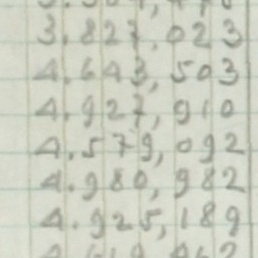 3.827,023
4.643,503
4.927,910
4.579,092
4.980,982
4.925,189